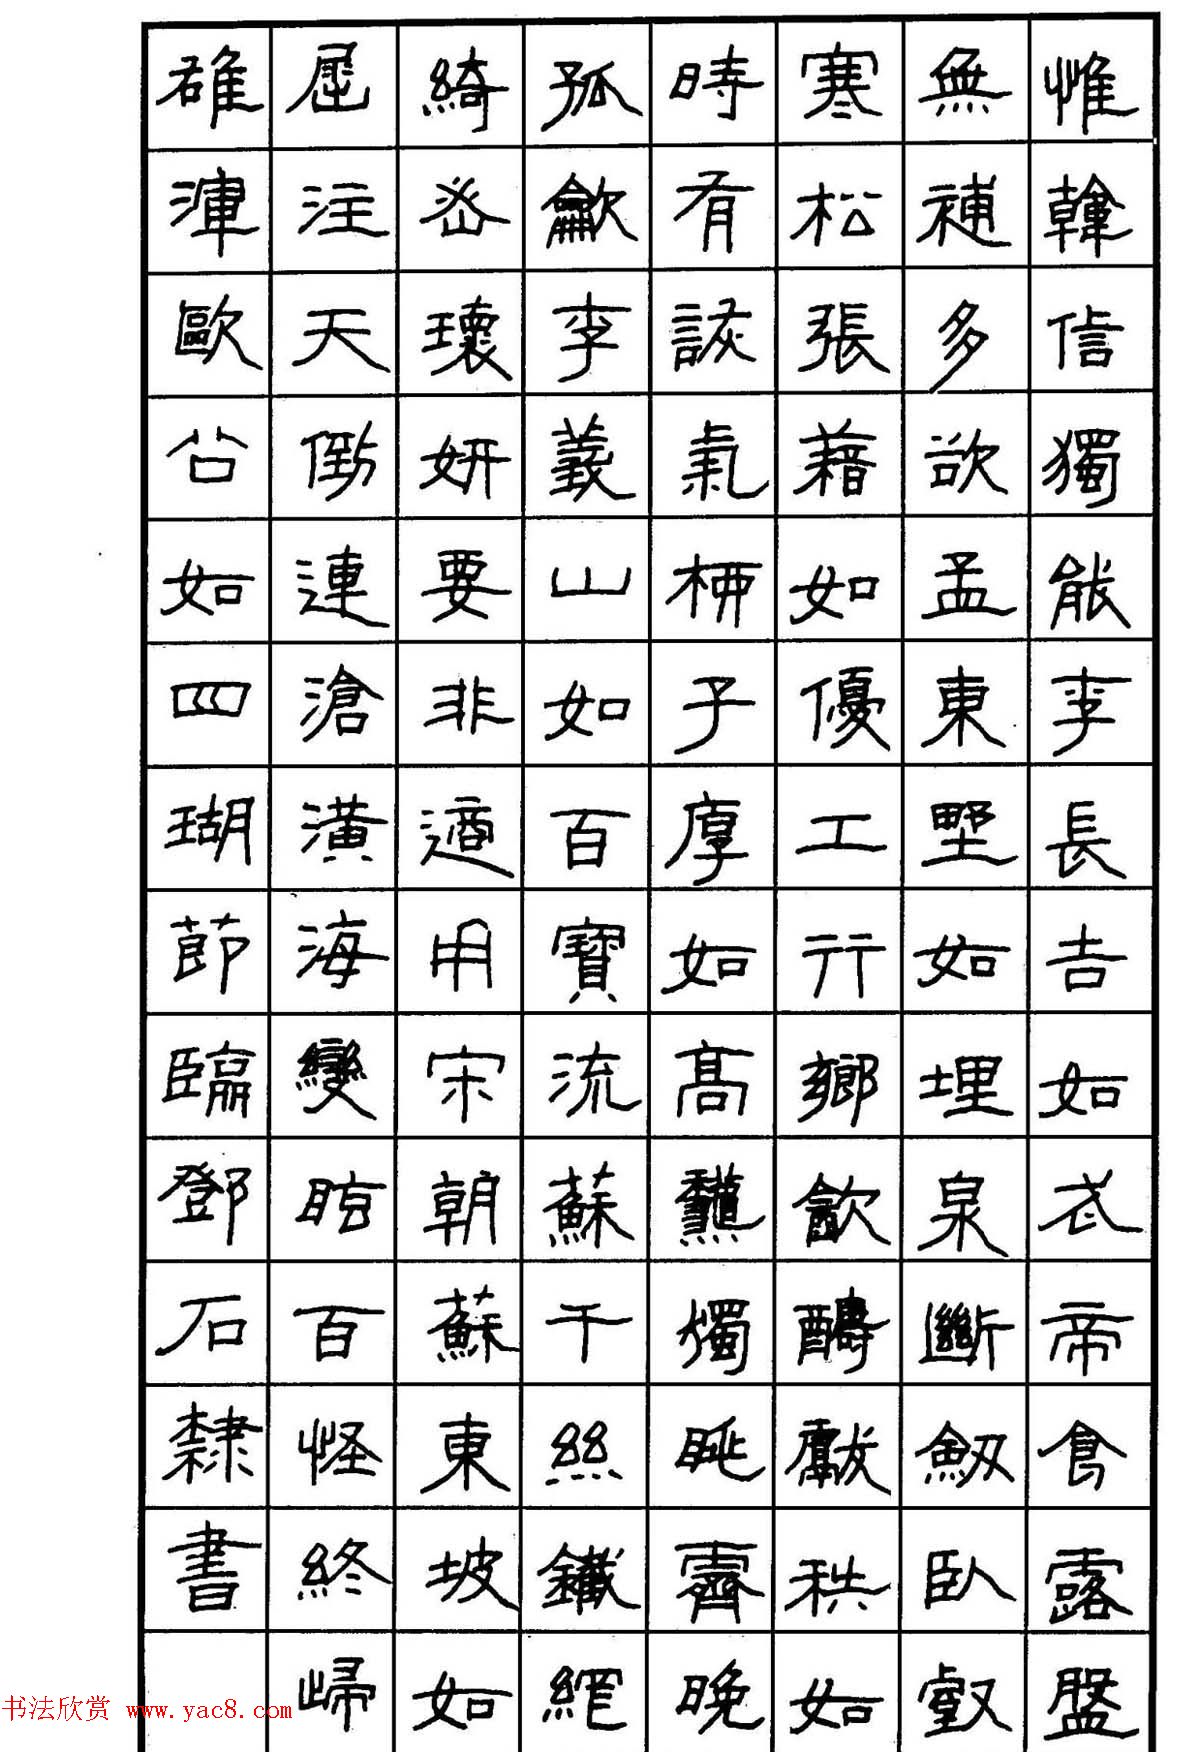 惟韓信獨能李長吉如武帝食露盤
無補多欲孟東野如埋泉斷劒臥壑
寒松張藉如優工行鄉飲醻獻秩如
時有詼氣柳子厚如高龝獨眺霽晚
孤龡李義山如百寶流蘇千絲鐵網
綺密瓌妍要非適用宋朝蘇東坡如
屈注天潢倒連滄海變眩百怪終歸
雄渾歐公如四瑚節臨鄧石隸書
书法欣赏 www.yac8.com